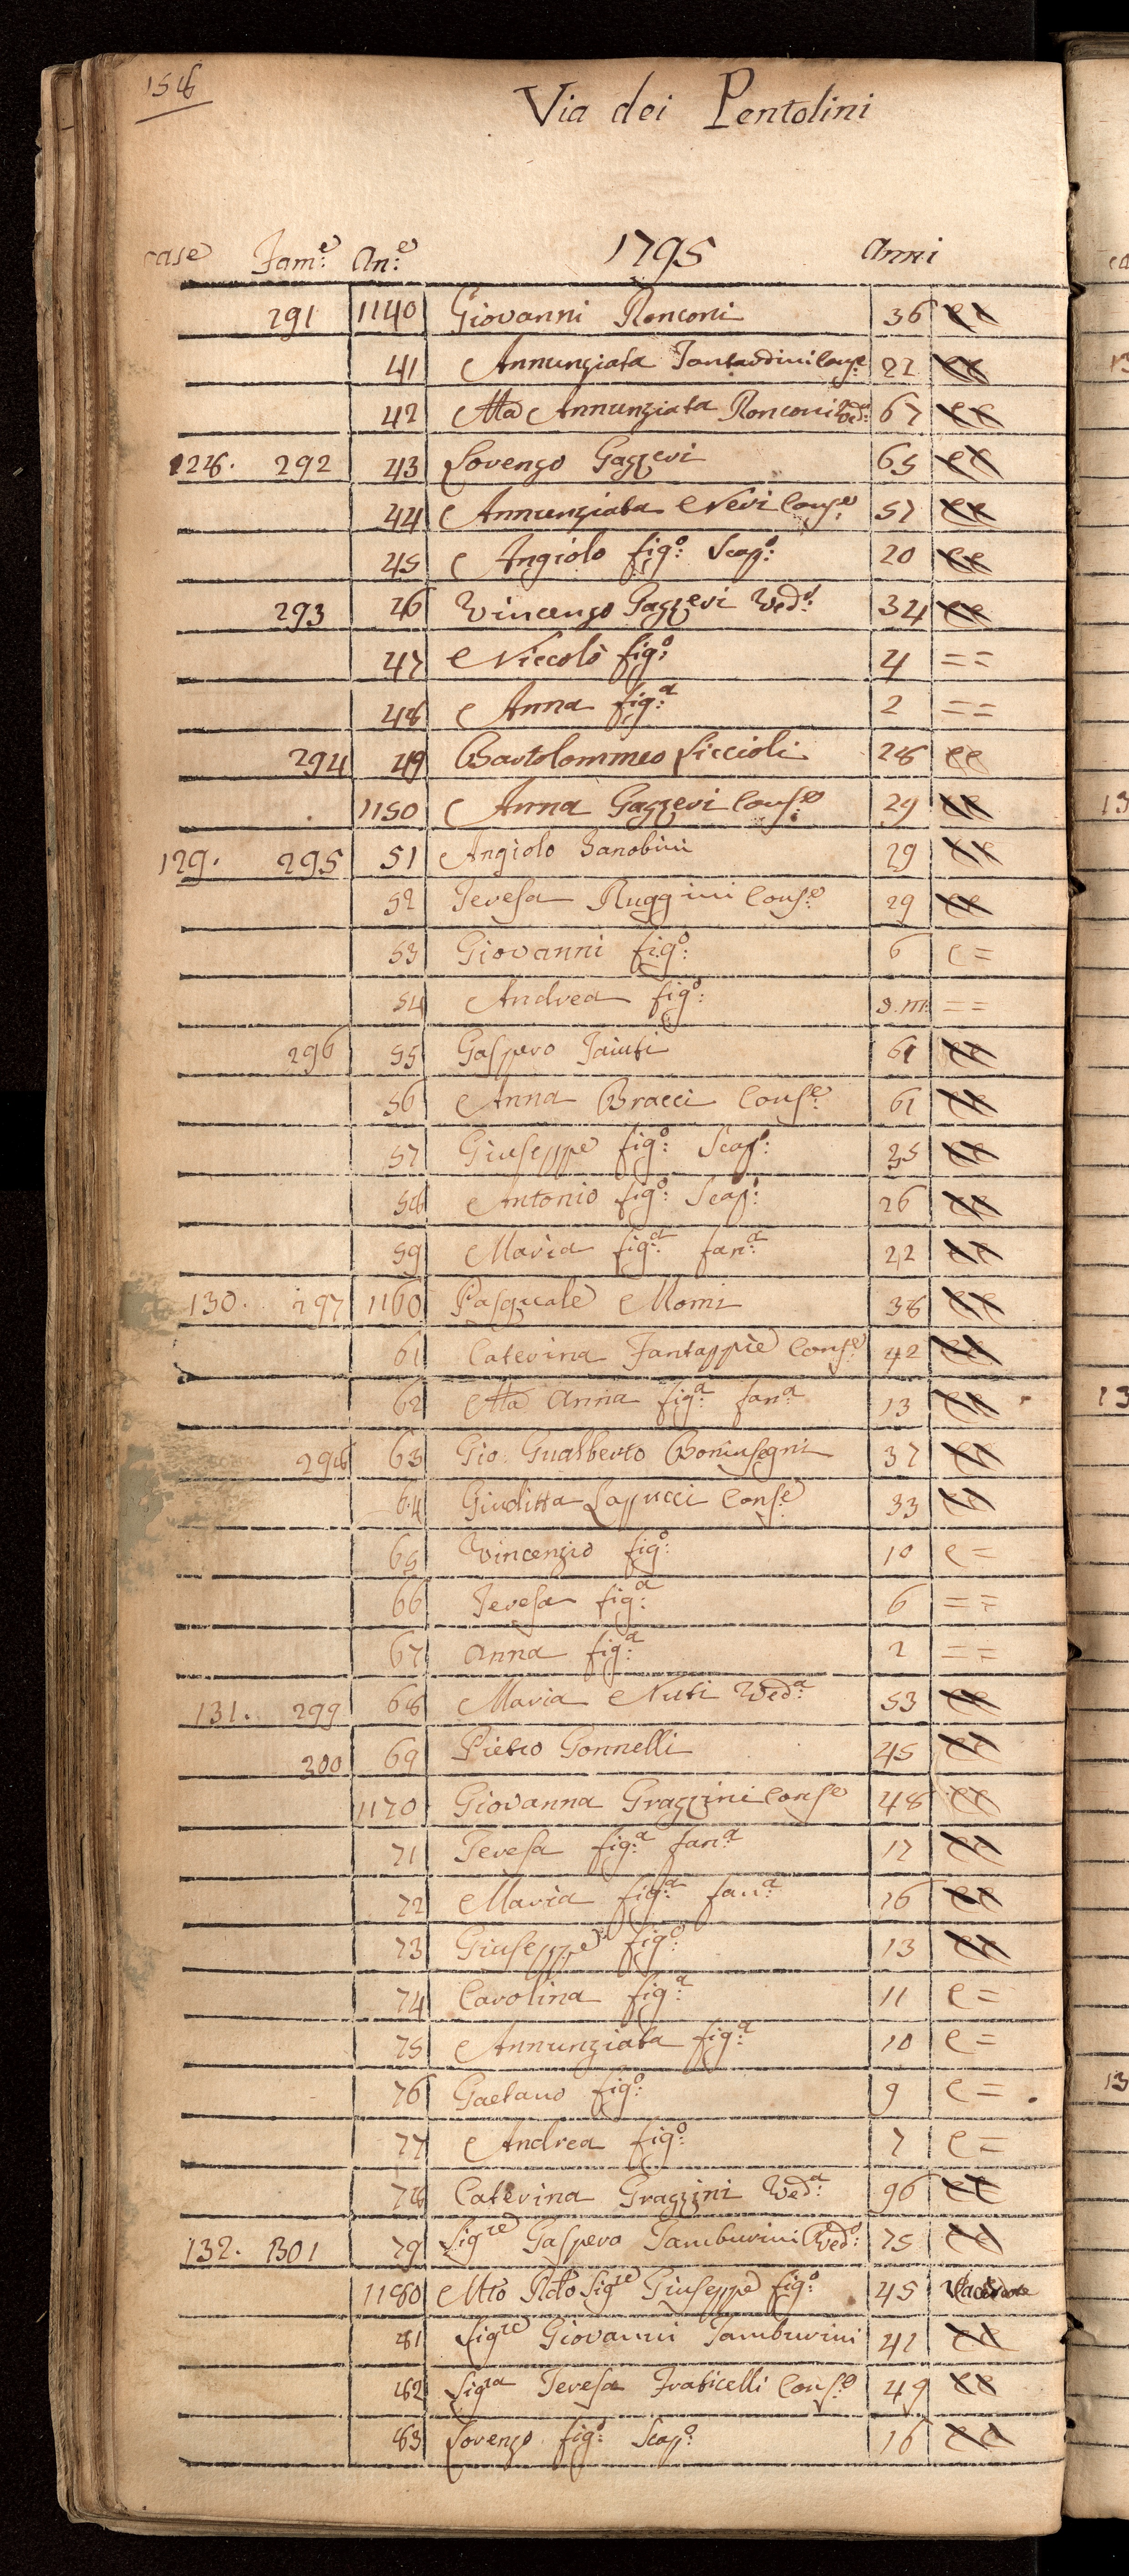 158
Via dei Pentolini
case Fam:e An:e 1795 Anni
291 1140 Giovanni Ronconi 36 CC
41 Annunziata Conse: 22 CC
42 Ma Annunziata Ronconi Ved:a 67 CC
128. 292 43 Lorenzo Gazzeri 65 CC
44 Annunziata Neri Conse: 57 CC
45 Angiolo figo: Scapo: 20 CC
293 46 Vincenzo Gazzeri Vedo: 34 CC
47 Niccolò figo: 4 ==
48 Anna figa: 2 ==
294 49 Bartolommeo Liccioli 28 CC
1150 Anna Gazzeri Conse: 29 CC
129. 295 51 Angiolo Zanobini 29 CC
52 Teresa Ruggini Conse: 29 CC
53 Giovanni figo: 6 C=
54 Andrea figo: ==
296 55 Gaspero 61 CC
56 Anna Bracci Conse: 61 CC
57 Giuseppe figo: Scapo: 35 CC
58 Antonio figo: Scapo: 26 CC
59 Maria figa: fana: 22 CC
130. 297 1160 Pasquale Momi 38 CC
61 Caterina Fantappiè Conse: 42 CC
62 Ma Anna figa: fana: 13 CC
298 63 Gio: Gualberto Boninsegni 37 CC
64 Giuditta Lapucci Conse: 33 CC
65 Vincenzio figo: 10 C=
66 Teresa figa: 6 ==
67 Anna figa: 2 ==
131. 299 68 Maria Nuti Veda: 53 CC
300 69 Pietro Gonnelli 45 CC
1170 Giovanna Grazzini Conse 48 CC
71 Teresa figa: fana: 17 CC
72 Maria figa: fana: 16 CC
73 Giuseppe figo: 13 CC
74 Carolina figa: 11 C=
75 Annunziata figa: 10 C=
76 Gaetano figo: 9 C=
77 Andrea figo: 7 C=
78 Caterina Grazzini Veda: 96 CC
132. 301 79 Sigre Gaspero Tamburini Vedo: 75 CC
1180 Mto Rdo Sigre Giuseppe figo: 45
81 Sigre Giovanni Tamburini 42 CC
82 Sigra Teresa Fraticelli Conse: 49 CC
83 Lorenzo figo: Scapo: 16 CC